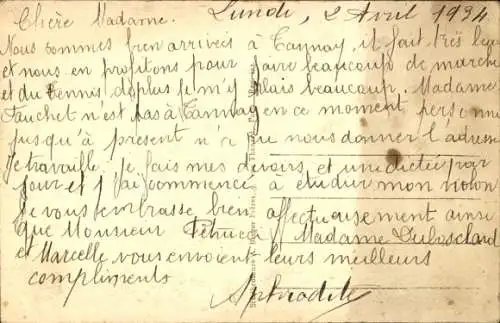 Chère Madame. Lundi, 2 Avril 1934
Nous sommes bien arrivées à Tannay, il fait très beau
et nous en profitons pour faire beaucoup de marche
et du tennis de plus je m'y plais beaucoup. Madame
Fauchet n'est pas à Tannay en ce moment personne
jusqu'à présent n'a su nous donner l'adresse
Je travaille. Je fais mes devoirs et une dictée par
jour et j'ai commencé à étudier mon violon
Je vous embrasse bien affectueusement ainsi
que Monsieur Madame Duboschard
et Marcelle vous envoient leurs meilleurs
compliments
Aphrodite